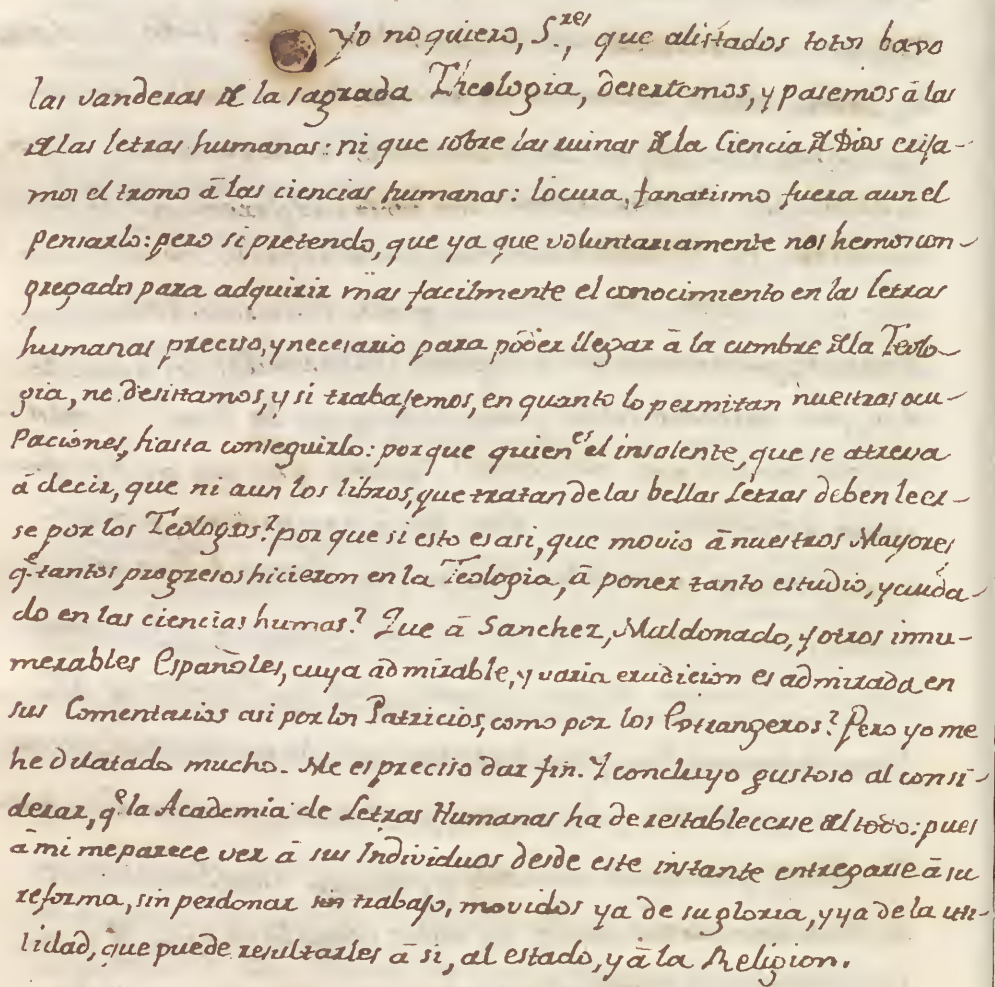 yo no quiero, S.res, que alistados totos baxo
las vanderas de la sagrada Theologia, desertemos, y pasemos â las
de las letras humanas: ni que sobre las ruinas de la Ciencia de Dios erija-
mos el trono â las ciencias humanas: locura, fanatismo fuera aun el
pensarlo: pero si pretendo, que ya que voluntariamente nos hemos con-
gregado para adquirir mas facilmente el conocimiento en las letras
humanas preciso, y necesario para poder llegar â la cumbre de la Teolo-
gia, no desistamos, y si trabajemos, en quanto lo permitan nuestras ocu-
paciones, hasta conseguirlo: porque quien es el insolente, que se atreva
â decir, que ni aun los libros, que tratan de las bellas Letras deben leer-
se por los Teologos? por que si esto es asi, que movio â nuestros Mayores
q.e tantos progresos hicieron en la Teologia, â poner tanto estudio, y cuida-
do en las ciencias humas? Que â Sanchez, Maldonado, y otros innu-
merables Españoles, cuya admirable, y varia erudicion es admirada en
sus Comentarios asi por los Patricios, como por los Extrangeros? Pero yo me
he dilatado mucho. Me es preciso dar fin. Y concluyo gustoso al consi-
derar, q.e la Academia de Letras Humanas ha de restablecerse del todo: pues
â mi me parece ver â sus Individuos desde este instante entregarse â su
reforma, sin perdonar sin trabajo, movidos ya de su gloria, y ya de la uti-
lidad, que puede resultarles â si, al estado, y â la Religion.